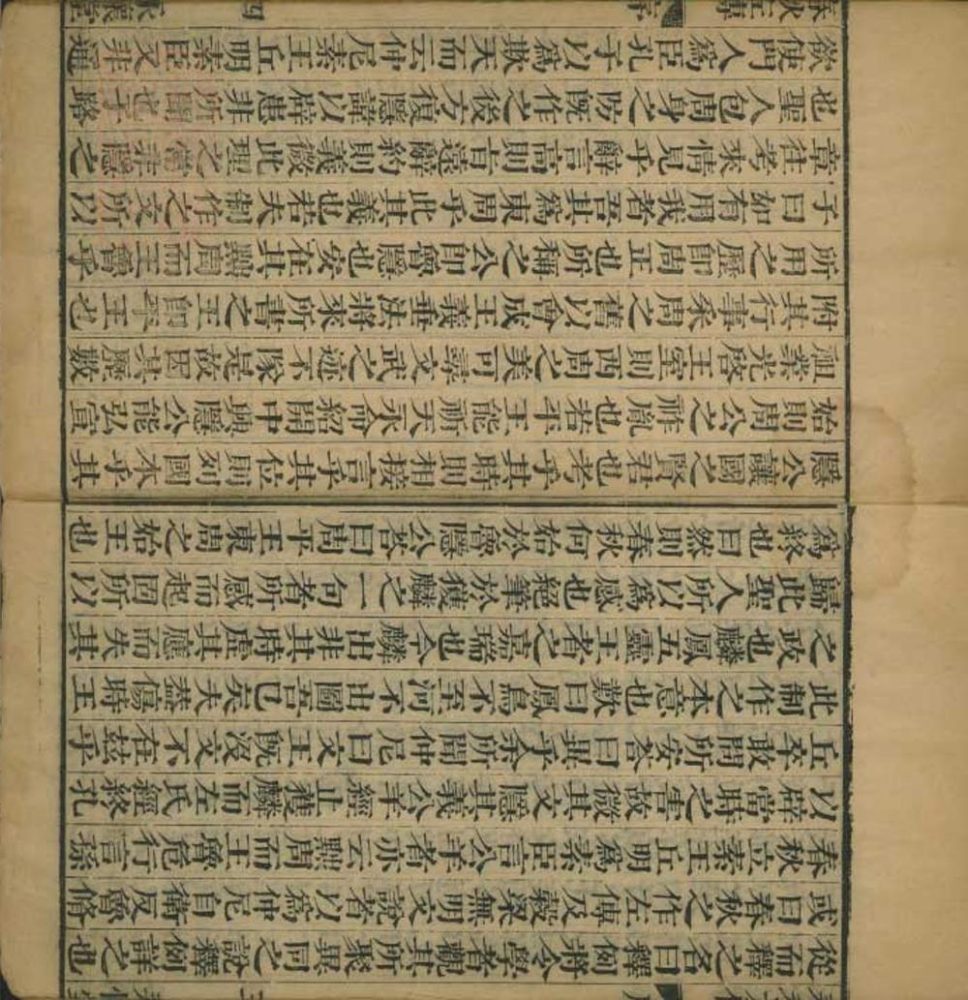 從而釋之名曰釋例將令學者觀其所聚異同之說釋例詳之也
或曰春秋之作左傳及穀梁無明文說者以爲仲尼自衛反魯脩
春秋立素王丘明爲素臣言公羊者亦云黜周而王魯危行言孫
以辟當時之害故微其文隱其義公羊經止獲麟而左氏經終孔
丘卒敢問所安荅曰異乎余所聞仲尼曰文王旣沒文不在茲乎
此制作之本意也歎曰鳳鳥不至河不出圖吾已矣夫蓋傷時王
之政也麟鳳五靈王者之嘉瑞也今麟出非其時虛其應而失其
歸此聖人所以爲感也絕筆於獲麟之一句者所感而起固所以
爲終也曰然則春秋何始於魯隱公荅曰周平王東周之始王也
隱公讓國之賢君也考乎其時則相接言乎其位則列國本乎其
始則周公之祚胤也若平王能祈天永命紹開中興隱公能弘宣
祖業光啓王室則西周之美可尋文武之迹不隊是故因其歷數
附其行事采周之舊以會成王義垂法將來所書之王即平王也
所用之歷即周正也所稱之公即魯隱也安在其黜周而王魯乎
子曰如有用我者吾其爲東周乎此其義也若夫制作之文所以
章往考來情見乎辭言高則旨遠辭約則義微此理之常非隱之
也聖人包周身之防旣作之後方復隱諱以辟患非所聞也子路
欲使門人爲臣孔子以爲欺天而云仲尼素王丘明素臣又非通